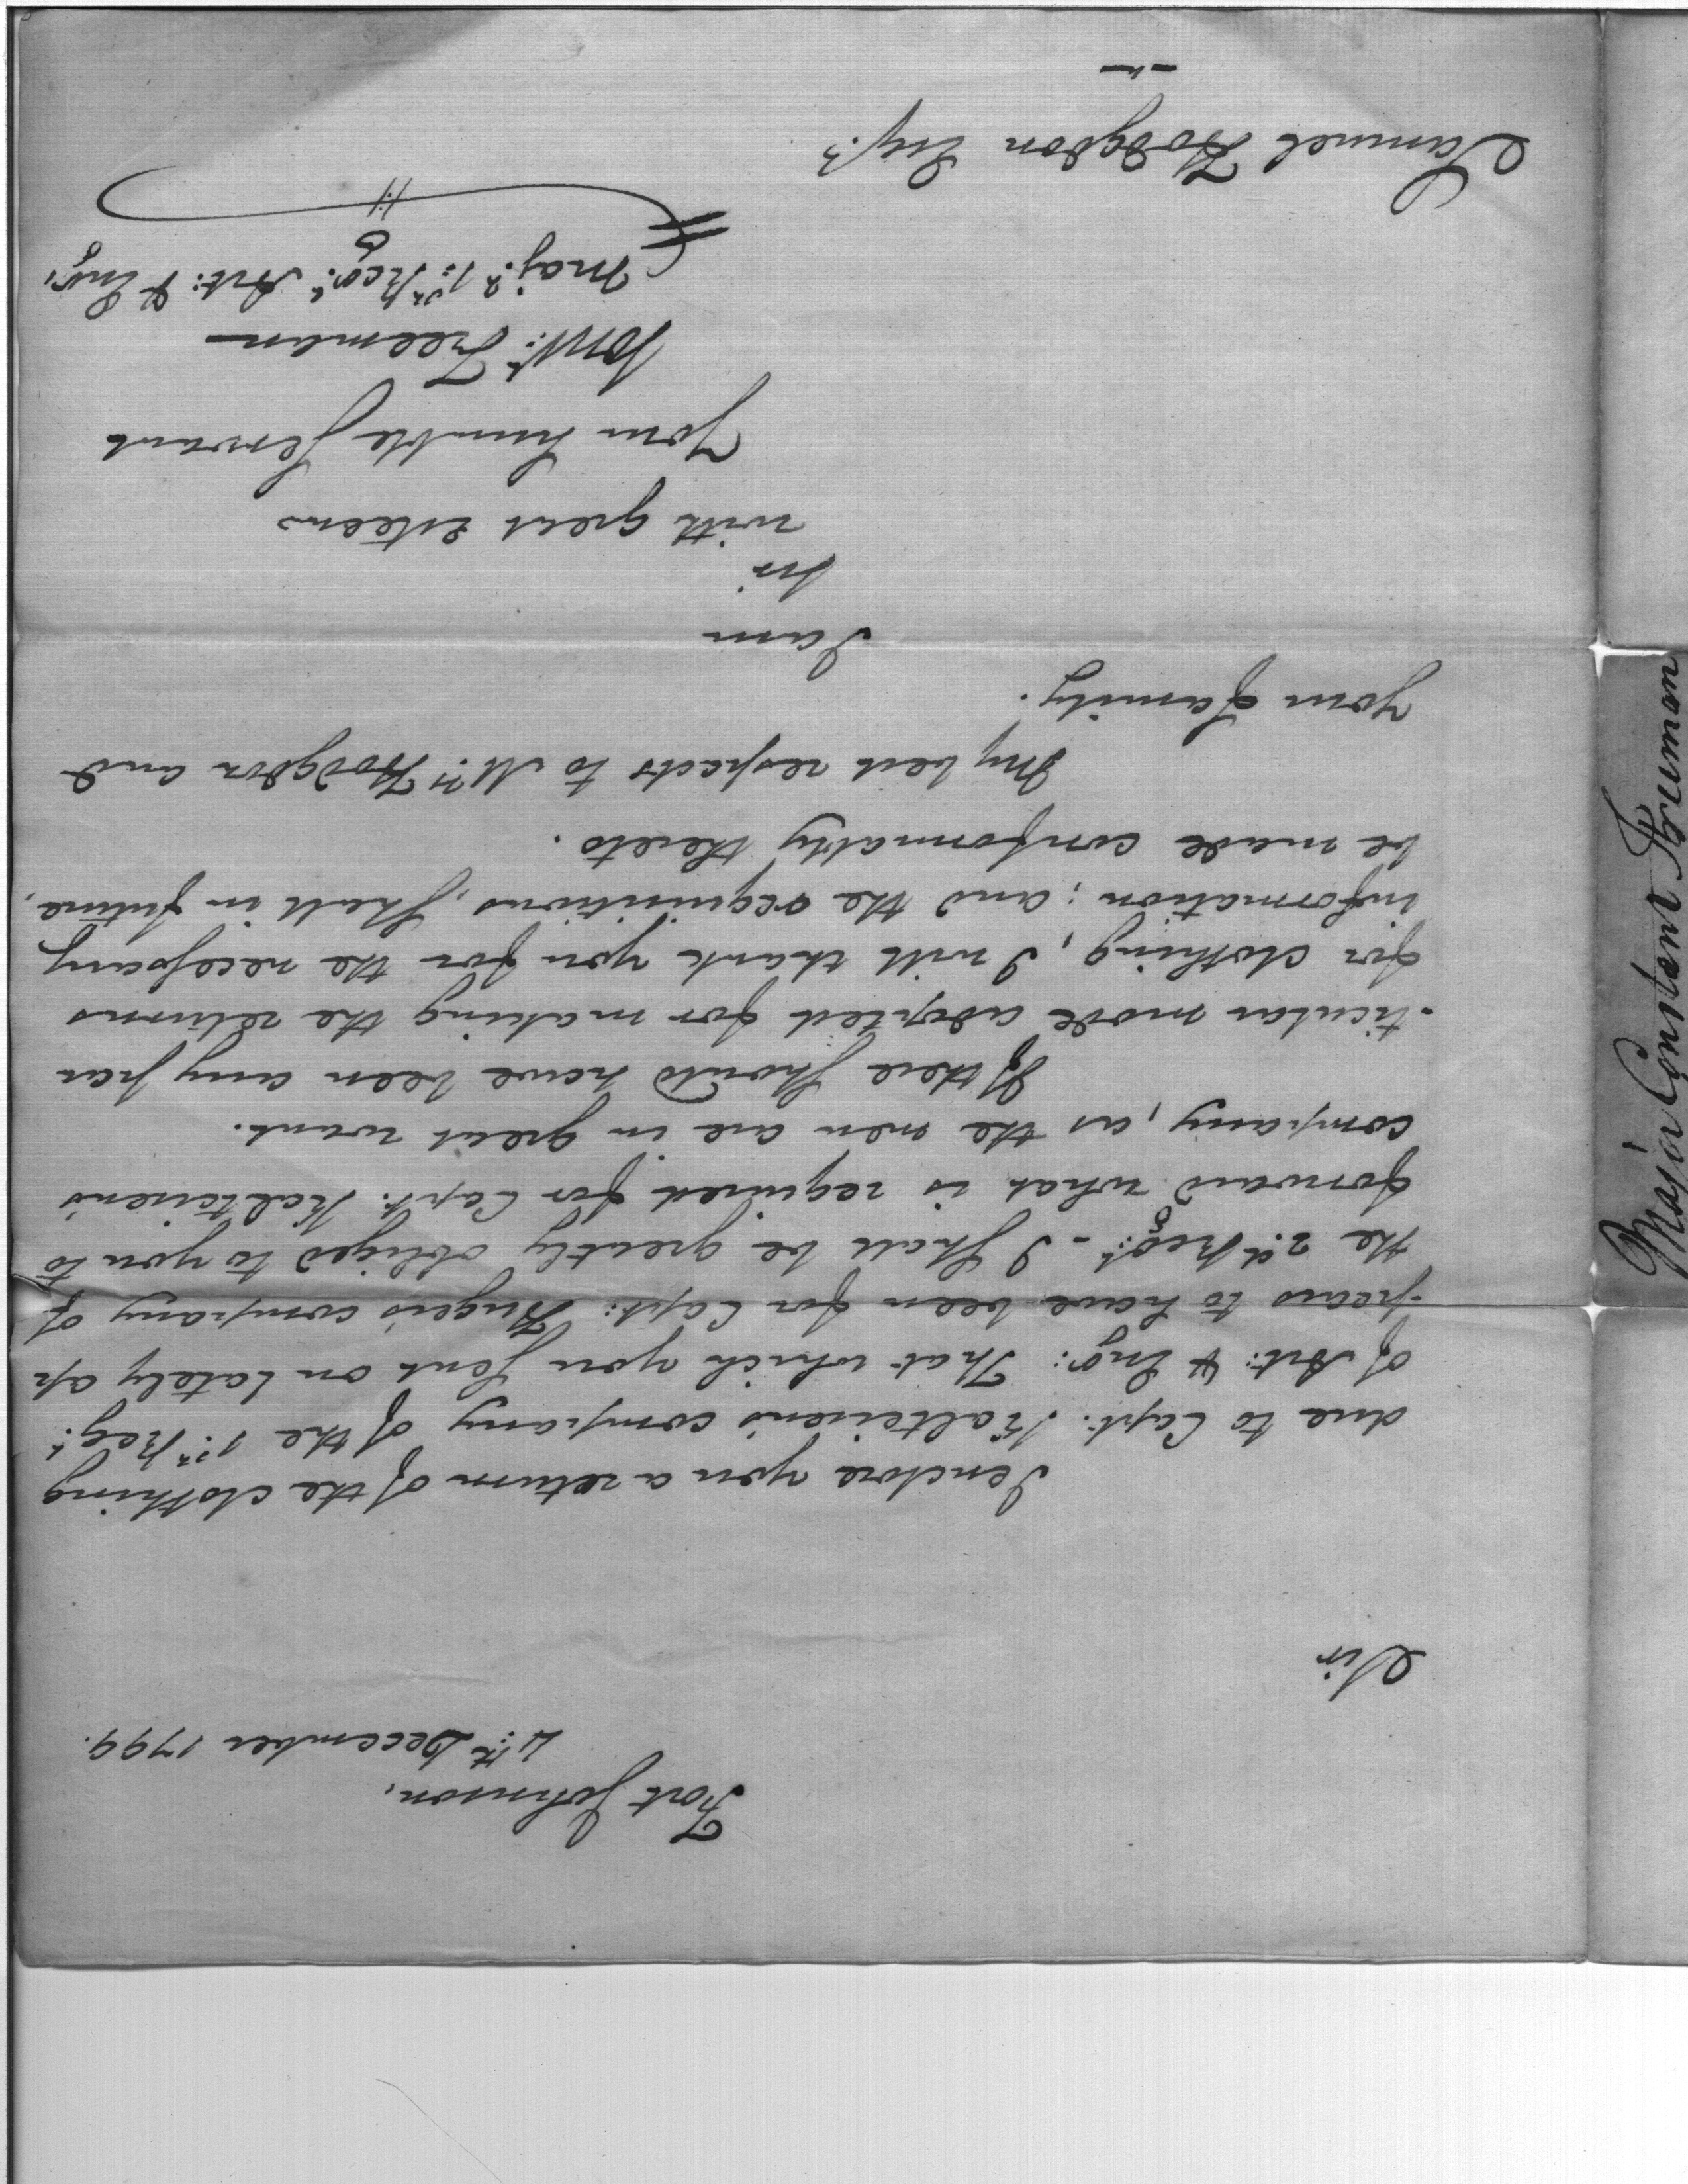 Fort Johnson,
4th: December 1799.
Sir
I enclose you a return of the clothing
due to Capt: Kalteisen's company of the 1st: Regt:
of Art: & Eng: That which you sent on lately ap
-pears to have been for Capt: Huger's company of
the 2d: Regt: - I shall be greatly obliged to you to
forward what is required for Capt: Kalteisen's
company, as the men are in great want.
If there should have been any par
-ticular mode adopted for making the returns
for clothing, I will thank you for the necessary
information; and the requisitions, shall in future,
be made conformably thereto.
My best respects to Mrs: Hodgdon and
your family.
I am
Sir
with great esteem
Your humble servant
Const: Freeman
Majr: 1st: Regt: Art: & Eng:
Samuel Hodgdon Esqr:
Major Constant Freeman